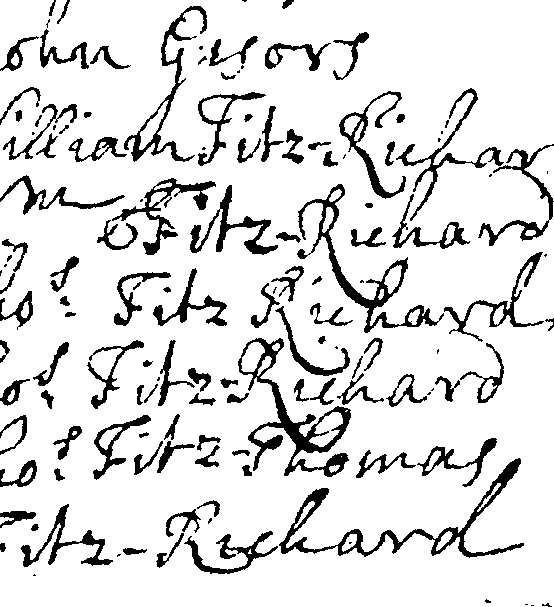 ohn Gisors
illiam Fitz-Richar
m Fitz-Richard
hos: Fitz Richard
hos: Fitz-Richard
hos: Fitz-Thomas
Fitz-Richard